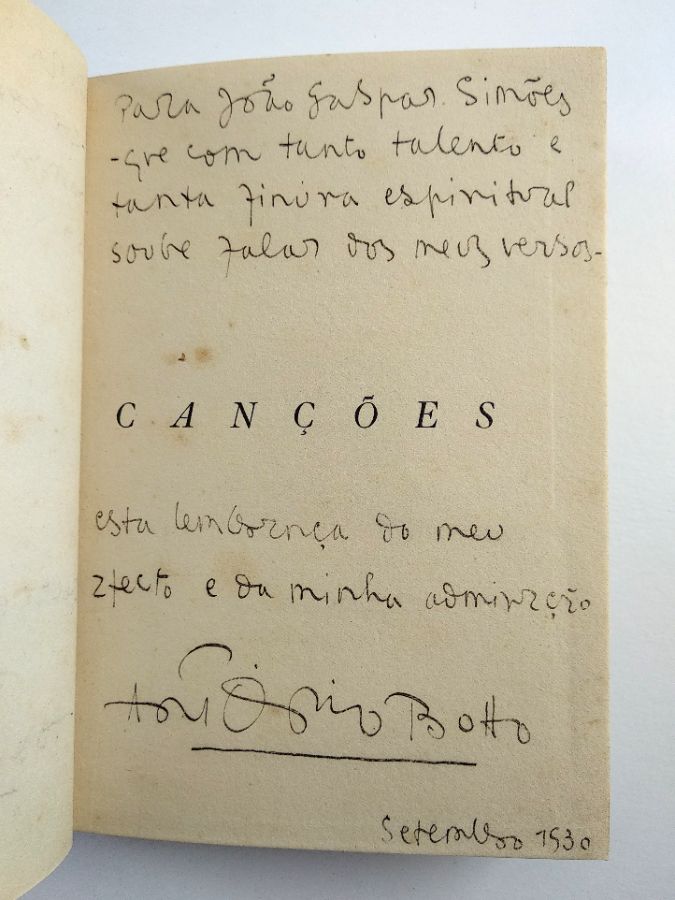 Para João Gaspar Simões
-que com tanto talento e
tanta finura espiritual
soube falar dos meus versos-
CANÇÕES
esta lembrança do meu
afecto e da minha admiração
António Botto
Setembro 1930